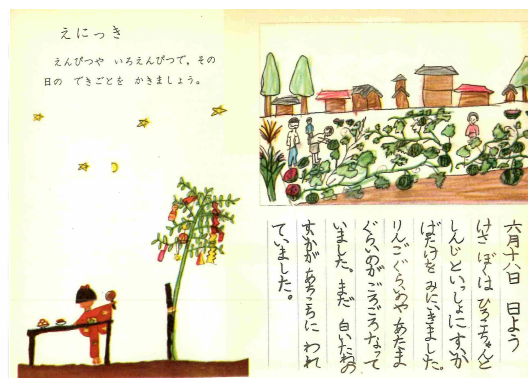 えにっき
えんぴつや いろえんぴつで、その
日の できごとを かきましょう。
六月十八日 日よう
けさ ぼくは ひろこちゃんと
しんじといっしょにすいか
ばたけを みに、いきました。
りんごぐらいのや あたま
ぐらいのが ごろごろなって
いました。まだ 白いたねの
すいかが あちこちに われ
ていました。